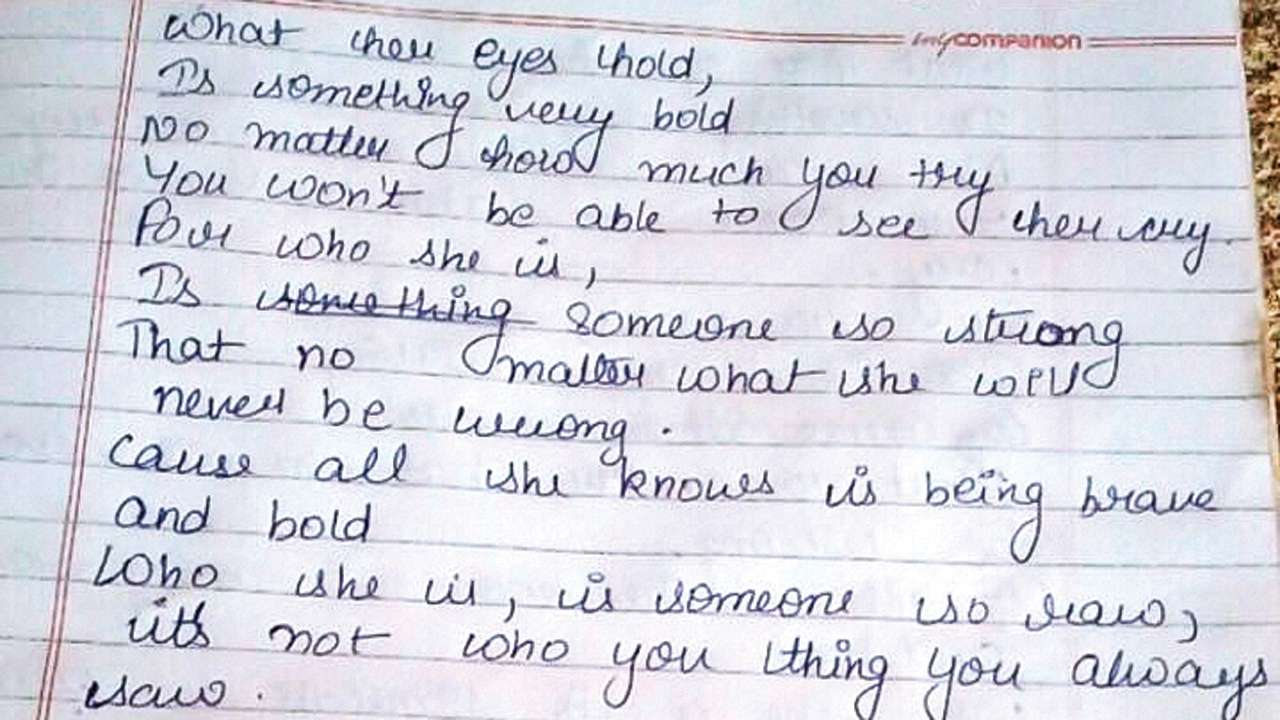 mycompanion
What her eyes hold,
Is something very bold
No matter how much you try
You won't be able to see her cry.
For who she is,
Is something someone so strong
That no matter what she will
never be wrong.
Cause all she knows is being brave
and bold
Who she is, is someone so raw,
it's not who you thing you always
saw.